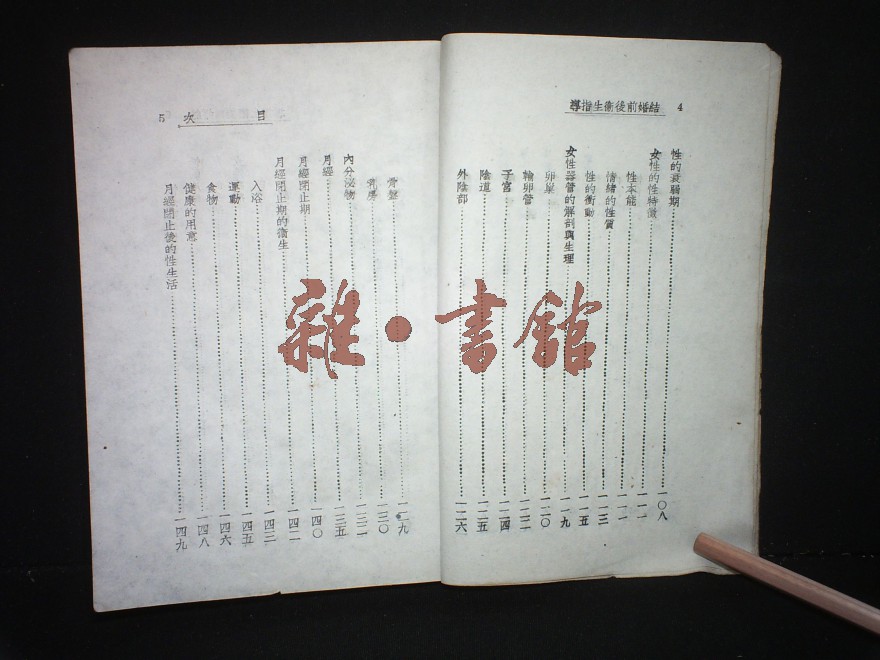 4 結婚前後衛生指導
性的衰弱期……一〇八
女性的性特徵……一一一
性本能……一一一
情緒的性質……一一三
性的衝動……一一五
女性器管的解剖與生理……一一九
卵巢……一二〇
輸卵管……一二二
子宮……一二四
陰道……一二五
外陰部……一二六
目次 5
骨盤……一二九
乳房……一三〇
內分泌物……一三二
月經……一三五
月經閉止期……一四〇
月經閉止期的衛生……一四二
入浴……一四三
運動……一四五
食物……一四六
健康的用意……一四八
月經閉止後的性生活……一四九
雜·書館